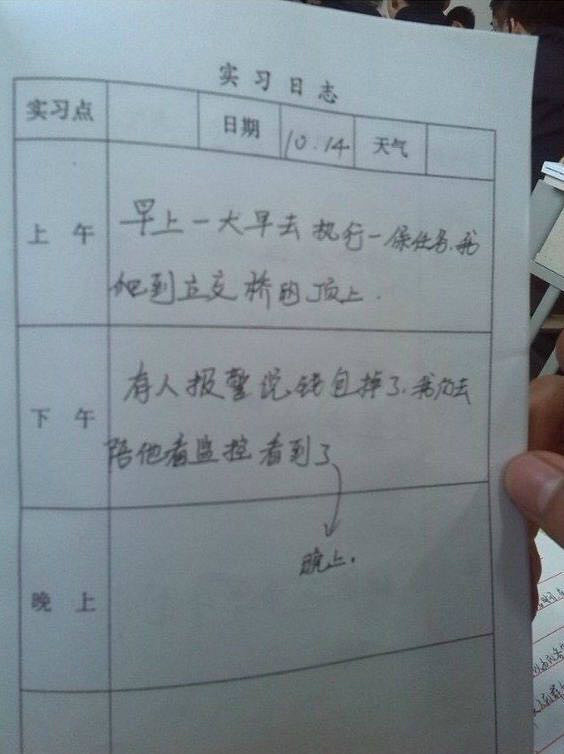 实习日志
实习点 日期 10.14 天气
上午 早上一大早去执行一保任务.我
爬到立交桥的顶上.
下午 有人报警说钱包掉了.我们去
陪他看监控看到了
晚上 晚上.